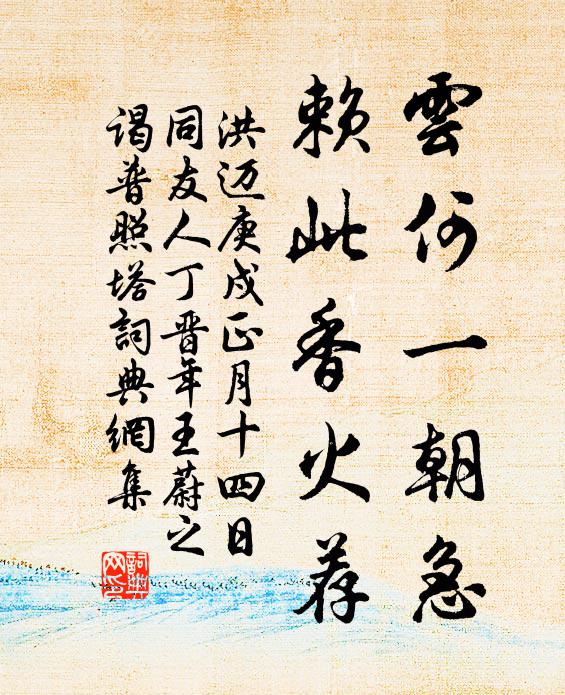 雲何一朝急
賴此香火荐
洪迈庚戍正月十四日
同友人丁晋年王蔚之
谒普照塔詞典網集
詞典